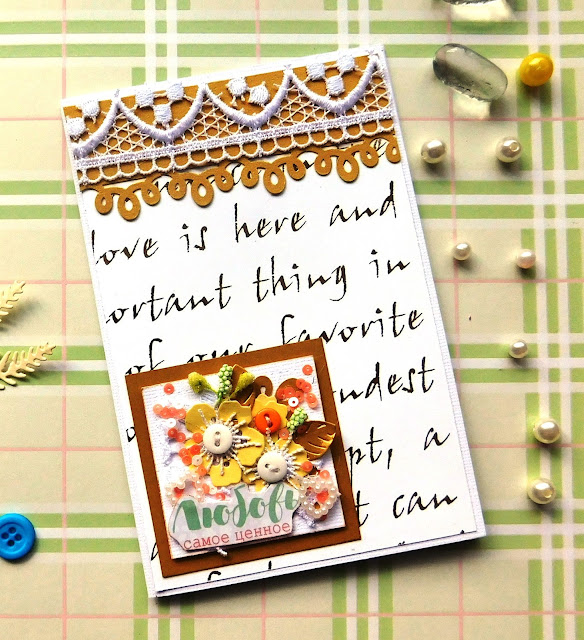 love is here and
ortant thing in
of our favorite
ndest
pt, a
t can
Любовь
самое ценное